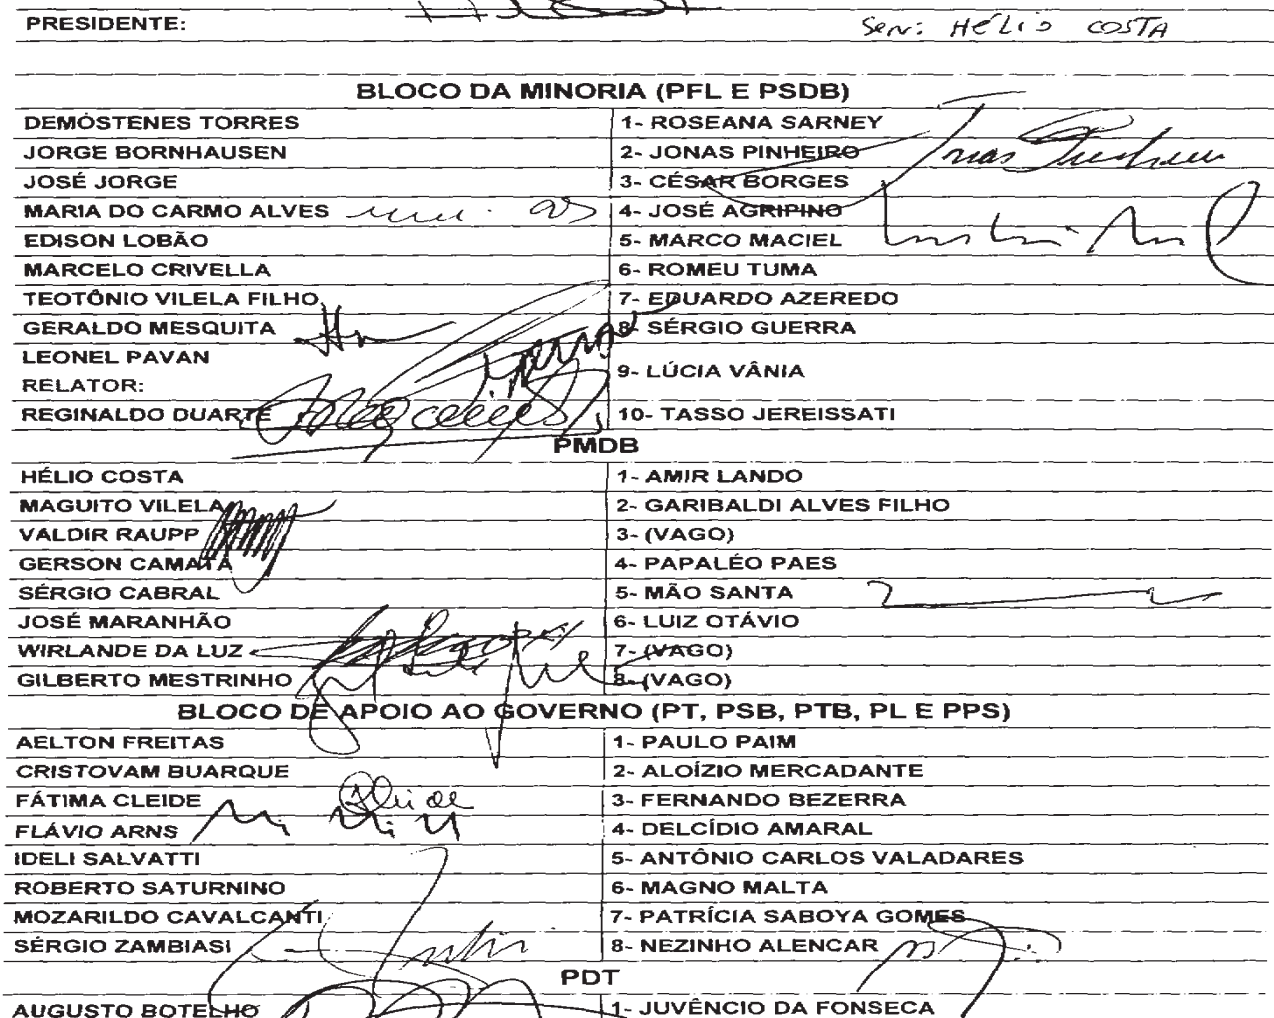 PRESIDENTE: Sen: HÉLIO COSTA
BLOCO DA MINORIA (PFL E PSDB)
DEMÓSTENES TORRES 1- ROSEANA SARNEY
JORGE BORNHAUSEN 2- JONAS PINHEIRO
JOSÉ JORGE 3- CÉSAR BORGES
MARIA DO CARMO ALVES 4- JOSÉ AGRIPINO
EDISON LOBÃO 5- MARCO MACIEL
MARCELO CRIVELLA 6- ROMEU TUMA
TEOTÔNIO VILELA FILHO 7- EDUARDO AZEREDO
GERALDO MESQUITA 8- SÉRGIO GUERRA
LEONEL PAVAN
RELATOR: 9- LÚCIA VÂNIA
REGINALDO DUARTE 10- TASSO JEREISSATI
PMDB
HÉLIO COSTA 1- AMIR LANDO
MAGUITO VILELA 2- GARIBALDI ALVES FILHO
VALDIR RAUPP 3- (VAGO)
GERSON CAMATA 4- PAPALÉO PAES
SÉRGIO CABRAL 5- MÃO SANTA
JOSÉ MARANHÃO 6- LUIZ OTÁVIO
WIRLANDE DA LUZ 7- (VAGO)
GILBERTO MESTRINHO 8- (VAGO)
BLOCO DE APOIO AO GOVERNO (PT, PSB, PTB, PL E PPS)
AELTON FREITAS 1- PAULO PAIM
CRISTOVAM BUARQUE 2- ALOÍZIO MERCADANTE
FÁTIMA CLEIDE 3- FERNANDO BEZERRA
FLÁVIO ARNS 4- DELCÍDIO AMARAL
IDELI SALVATTI 5- ANTÔNIO CARLOS VALADARES
ROBERTO SATURNINO 6- MAGNO MALTA
MOZARILDO CAVALCANTI 7- PATRÍCIA SABOYA GOMES
SÉRGIO ZAMBIASI 8- NEZINHO ALENCAR
PDT
AUGUSTO BOTELHO 1- JUVÊNCIO DA FONSECA